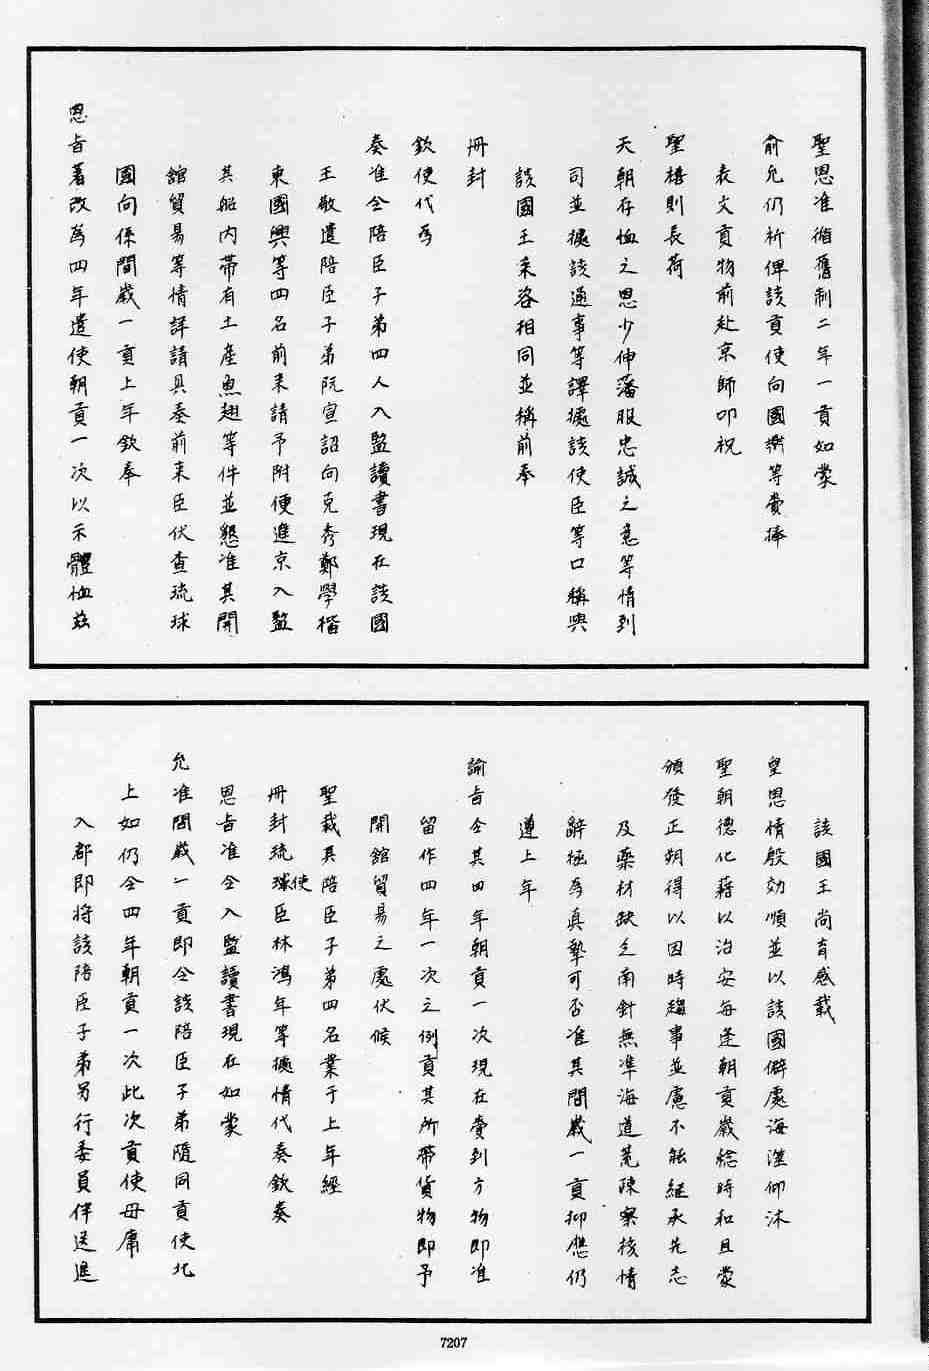 聖恩准循舊制二年一貢如蒙
俞允仍祈俾該貢使向國衡等賫捧
表文貢物前赴京師叩祝
聖禧則長荷
天朝存恤之恩少伸藩服忠誠之意等情到
司並據該通事等譯據該使臣等口稱與
該國王來咨相同並稱前奉
冊封
欽使代為
奏准令陪臣子弟四人入監讀書現在該國
王敬遣陪臣子弟阮宣詔向克秀鄭學楷
東國興等四名前來請予附便進京入監
其船內帶有土產魚翅等件並懇准其開
館貿易等情詳請具奏前來臣伏查琉球
國向係間歲一貢上年欽奉
恩旨著改為四年遣使朝貢一次以示體恤茲
該國王尚育感載
皇恩情殷効順並以該國僻處海澨仰沐
聖朝德化藉以治安每逢朝貢歲稔時和且蒙
頒發正朔得以因時趨事並慮不能繼承先志
及藥材缺乏南針無準海道荒陳察核情
辭極為真摯可否准其間歲一貢抑應仍
遵上年
諭旨令其四年朝貢一次現在賫到方物即准
留作四年一次之例貢其所帶貨物即予
開館貿易之處伏候
聖裁具陪臣子弟四名業于上年經
冊封琉球使臣林鴻年等據情代奏欽奏
恩旨准令入監讀書現在如蒙
允准間歲一貢即令該陪臣子弟隨同貢使北
上如仍令四年朝貢一次此次貢使毋庸
入都即將該陪臣子弟另行委員伴送進
7207